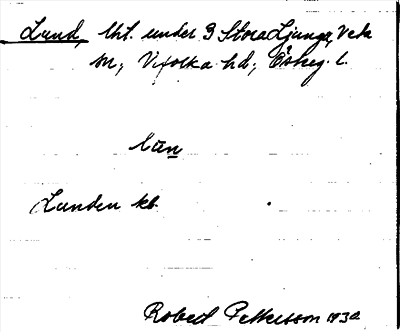 Lund, lht. under 3 Stora Ljunga, Veta
sn; Vifolka hd; Österg. l.
lun
Lunden kb.
Robert Pettersson 1932